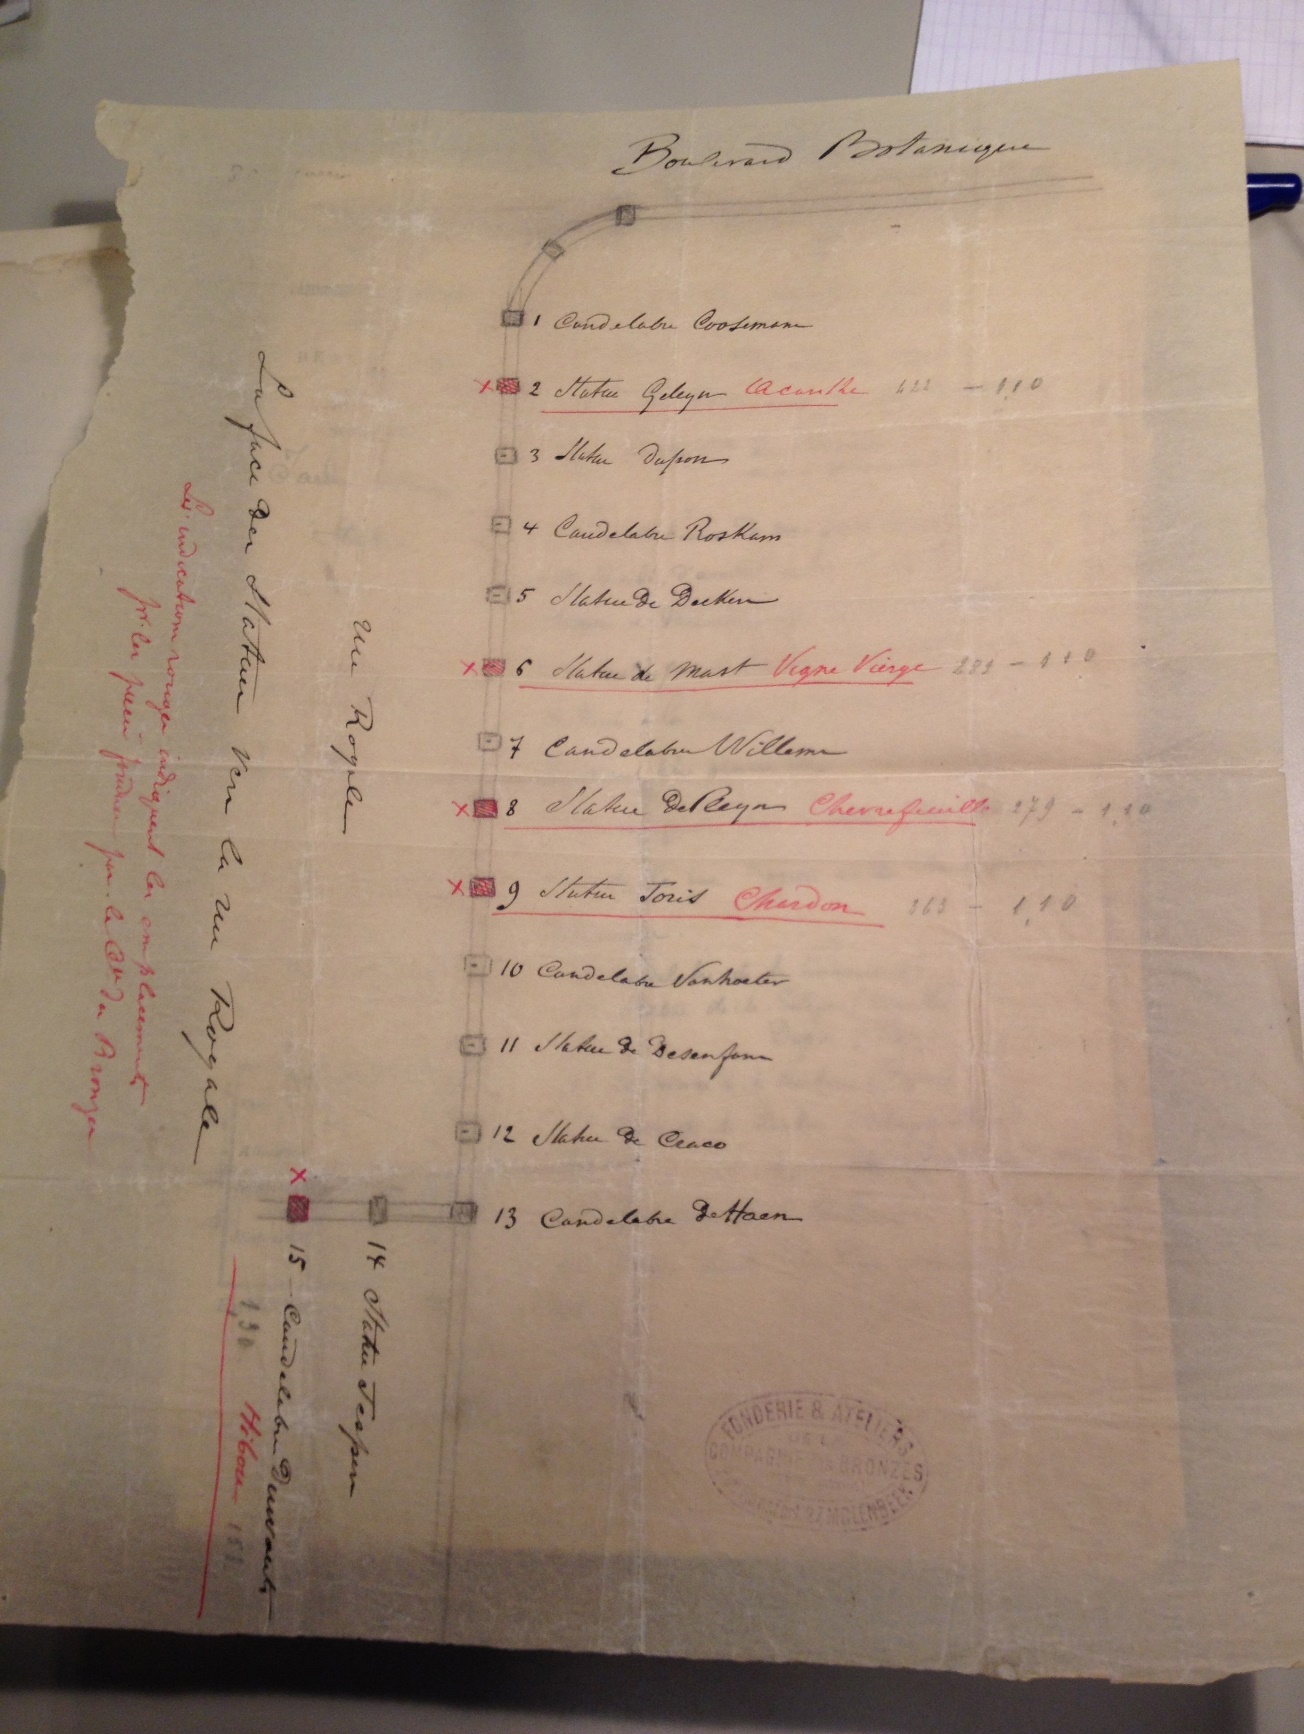 Boulevard Botanique
1 Candelabre Coosemans
2 Statue Geleyn Acanthe 422 - 1,10
3 Statue Dupon
4 Candelabre Roskam
5 Statue De Decken
6 Statue de Mast Vigne Vierge 283 - 1 10
7 Candelabre Willems
8 Statue De Pleyn Chevrefeuille 279 - 1,10
9 Statue Joris Chardon 363 - 1,10
10 Candelabre Vanhoeter
11 Statue de Desenfans
12 Statue de Craco
13 Candelabre De Haen
14 Statue Jespers
15 Candelabre
1,30 Hibou
rue Royale
La face des Statues vers la rue Royale
Les indications rouges indiquent les emplacements
pr. les pièces fondues par la Cie des Bronzes
FONDERIE & ATELIERS
DE LA
COMPAGNIE DES BRONZES
MOLENBEEK